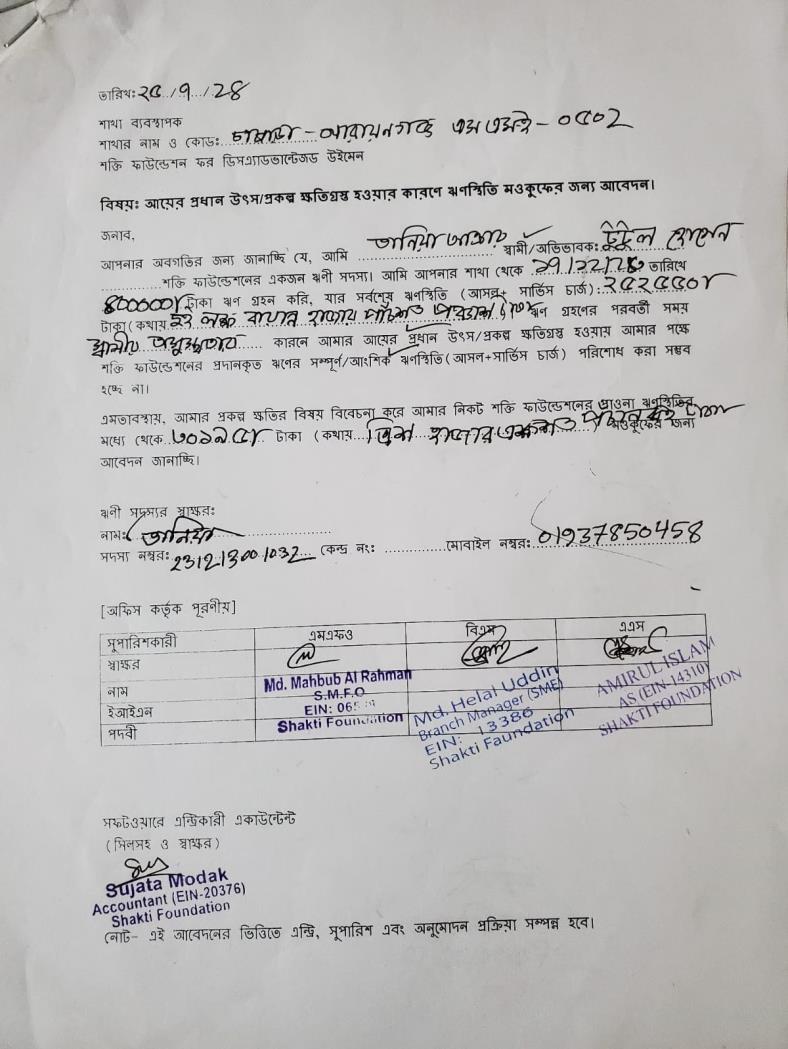 তারিখঃ ২৫/৭/২৪
শাখা ব্যবস্থাপক
শাখার নাম ও কোডঃ চাষাড়া - নারায়নগঞ্জ এস এমই - ০৫০২
শক্তি ফাউন্ডেশন ফর ডিসএ্যাডভান্টেজড উইমেন
বিষয়ঃ আয়ের প্রধান উৎস/প্রকল্প ক্ষতিগ্রস্থ হওয়ার কারণে ঋণস্থিতি মওকুফের জন্য আবেদন।
জনাব,
আপনার অবগতির জন্য জানাচ্ছি যে, আমি তানিয়া আক্তার স্বামী/অভিভাবকঃ টুটুল হোসেন
শক্তি ফাউন্ডেশনের একজন ঋনী সদস্য। আমি আপনার শাখা থেকে তারিখে
৪০০০০০৲ টাকা ঋণ গ্রহন করি, যার সর্বশেষ ঋণস্থিতি (আসল+ সার্ভিস চার্জ) : ২৫২৫৫০৲
টাকা (কথায় দুই লক্ষ বায়ান্ন হাজার পাঁচশত পঞ্চাশ ঋণ গ্রহনের পরবর্তী সময়
স্বামীর অসুস্থতার কারনে আমার আয়ের প্রধান উৎস/প্রকল্প ক্ষতিগ্রস্থ হওয়ায় আমার পক্ষে
শক্তি ফাউন্ডেশনের প্রদানকৃত ঋণের সম্পূর্ণ/আংশিক ঋণস্থিতি(আসল+সার্ভিস চার্জ) পরিশোধ করা সম্ভব
হচ্ছে না।
এমতাবস্থায়, আমার প্রকল্প ক্ষতির বিষয় বিবেচনা করে আমার নিকট শক্তি ফাউন্ডেশনের পাওনা ঋণস্থিতির
মধ্যে থেকে ৩০১৯৫৲ টাকা (কথায় ত্রিশ হাজার একশত মওকুফের জন্য
আবেদন জানাচ্ছি।
ঋনী সদস্যর স্বাক্ষরঃ
নামঃ তানিয়া
সদস্য নম্বরঃ 231213001032 কেন্দ্র নংঃ মোবাইল নম্বরঃ 01937850458
[অফিস কর্তৃক পূরনীয়]
সুপারিশকারী এমএফও বিএম এএস
স্বাক্ষর
নাম Md. Mahbub Al Rahman Md. Helal Uddin AMIRUL ISLAM
S.M.F.O Branch Manager (SME) AS (EIN-14310)
ইআইএন EIN: EIN: 13386 SHAKTI FOUNDATION
পদবী Shakti Foundation Shakti Faundation
সফটওয়ারে এন্ট্রিকারী একাউন্টেন্ট
(সিলসহ ও স্বাক্ষর)
Sujata Modak
Accountant (EIN-20376)
Shakti Foundation
নোট- এই আবেদনের ভিত্তিতে এন্ট্রি, সুপারিশ এবং অনুমোদন প্রক্রিয়া সম্পন্ন হবে।